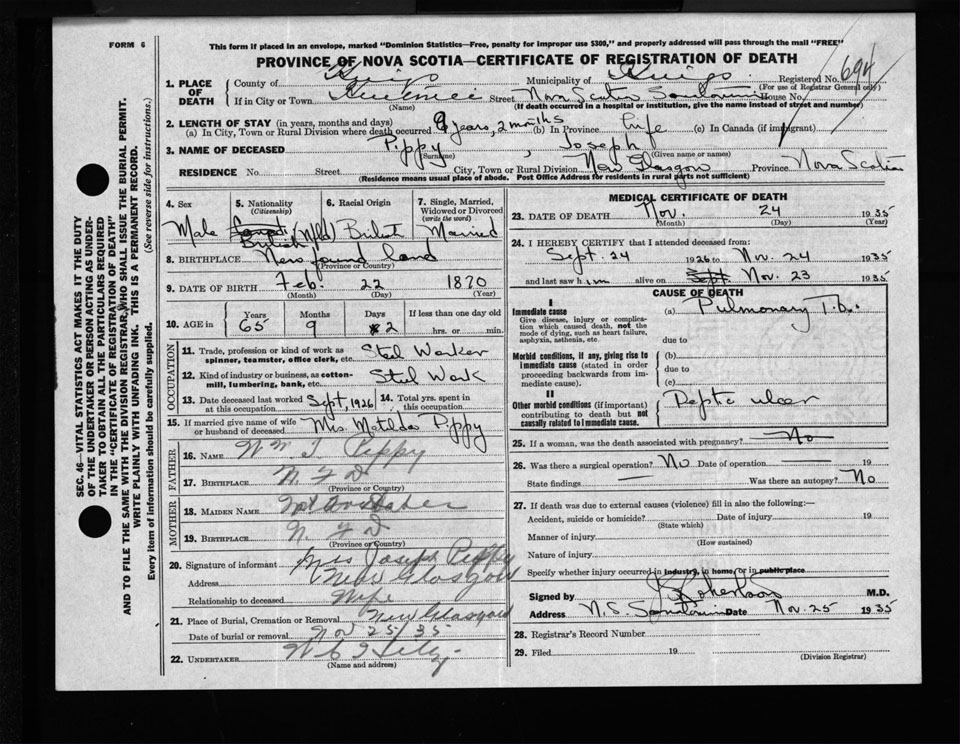 FORM 6
This form if placed in an envelope, marked "Dominion Statistics—Free, penalty for improper use $300," and properly addressed will pass through the mail "FREE"
PROVINCE OF NOVA SCOTIA—CERTIFICATE OF REGISTRATION OF DEATH
1. PLACE OF DEATH
County of Kings Municipality of Kings Registered No. 694
(For use of Registrar General only)
If in City or Town Street Nova Scotia House No.
(Name) (If death occurred in a hospital or institution, give the name instead of street and number)
2. LENGTH OF STAY (in years, months and days)
(a) In City, Town or Rural Division where death occurred years, 2 months (b) In Province Life (c) In Canada (if immigrant)
3. NAME OF DECEASED Pippy, Joseph
(Surname) (Given name or names)
RESIDENCE No. Street City, Town or Rural Division New Glasgow Province Nova Scotia
(Residence means usual place of abode. Post Office Address for residents in rural parts not sufficient)
SEC. 46—VITAL STATISTICS ACT MAKES IT THE DUTY
OF THE UNDERTAKER OR PERSON ACTING AS UNDER-
TAKER TO OBTAIN ALL THE PARTICULARS REQUIRED
IN THE "CERTIFICATE OF REGISTRATION OF DEATH"
AND TO FILE THE SAME WITH THE DIVISION REGISTRAR, WHO SHALL ISSUE THE BURIAL PERMIT.
WRITE PLAINLY WITH UNFADING INK. THIS IS A PERMANENT RECORD.
Every item of information should be carefully supplied. (See reverse side for instructions.)
4. Sex 5. Nationality (Citizenship) 6. Racial Origin 7. Single, Married, Widowed or Divorced (write the word)
Male British (Nfld) British Married
8. BIRTHPLACE New found land
(Province or Country)
9. DATE OF BIRTH Feb. 22 1870
(Month) (Day) (Year)
10. AGE in Years Months Days If less than one day old
65 9 2 hrs. or min.
OCCUPATION
11. Trade, profession or kind of work as spinner, teamster, office clerk, etc. Steel Worker
12. Kind of industry or business, as cotton-mill, lumbering, bank, etc. Steel Work
13. Date deceased last worked at this occupation Sept, 1926 14. Total yrs. spent in this occupation
15. If married give name of wife or husband of deceased Mrs. Matilda Pippy
FATHER
16. NAME Wm T. Pippy
17. BIRTHPLACE N. F. D
(Province or Country)
MOTHER
18. MAIDEN NAME
19. BIRTHPLACE N. F D
(Province or Country)
20. Signature of informant Mrs Joseph Pippy
Address New Glasgow
Relationship to deceased Wife
21. Place of Burial, Cremation or Removal New Glasgow
Date of burial or removal Nov 25/35
22. UNDERTAKER
(Name and address)
MEDICAL CERTIFICATE OF DEATH
23. DATE OF DEATH Nov. 24 1935
(Month) (Day) (Year)
24. I HEREBY CERTIFY that I attended deceased from:
Sept. 24 1926 to Nov. 24 1935
and last saw him alive on Sept. Nov. 23 1935
CAUSE OF DEATH
I
Immediate cause (a) Pulmonary T.b.
Give disease, injury or complication which caused death, not the mode of dying, such as heart failure, asphyxia, asthenia, etc.
due to
Morbid conditions, if any, giving rise to immediate cause (stated in order proceeding backwards from immediate cause).
(b)
due to
(c)
II
Other morbid conditions (if important) contributing to death but not causally related to immediate cause. Peptic ulcer
25. If a woman, was the death associated with pregnancy? No
26. Was there a surgical operation? No Date of operation 19
State findings Was there an autopsy? No
27. If death was due to external causes (violence) fill in also the following:—
Accident, suicide or homicide? Date of injury 19
(State which)
Manner of injury
(How sustained)
Nature of injury
Specify whether injury occurred in industry, in home, or in public place
Signed by Robertson M.D.
Address N.S. Date Nov. 25 1935
28. Registrar's Record Number
29. Filed 19
(Division Registrar)